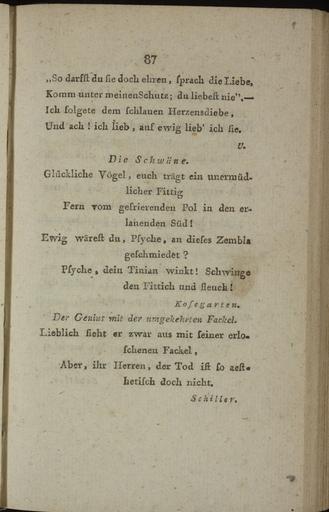 87
„So darfſt du ſie doch ehren, ſprach die Liebe,
Komm unter meinen Schutz; du liebeſt nie”.—
Ich folgete dem ſchlauen Herzensdiebe,
Und ach! ich lieb, auf ewig lieb' ich ſie.
V.
Die Schwäne.
Glückliche Vögel, euch trägt ein unermüd-
licher Fittig
Fern vom gefrierenden Pol in den er-
lauenden Süd!
Ewig wäreſt du, Pſyche, an dieſes Zembla
geſchmiedet?
Pſyche, dein Tinian winkt! Schwinge
den Fittich und fleuch!
Koſegarten.
Der Genius mit der umgekehrten Fackel.
Lieblich ſieht er zwar aus mit ſeiner erlo-
ſchenen Fackel,
Aber, ihr Herren, der Tod iſt ſo aeſt-
hetiſch doch nicht.
Schiller.